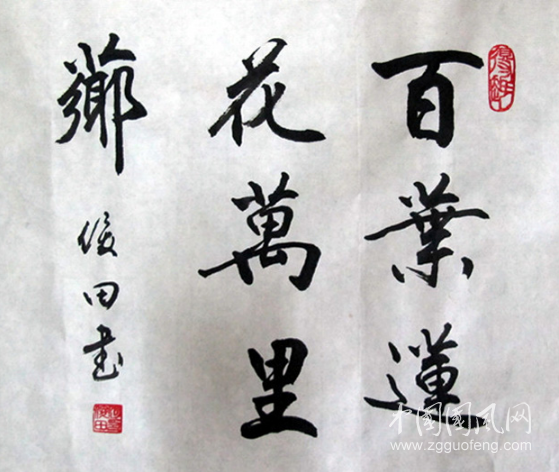 百葉蓮
花萬里
薌
俊田書
中国国风网
www.zgguofeng.com